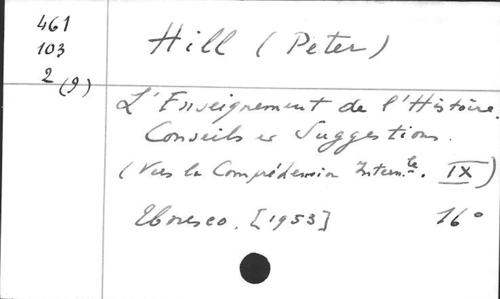 461
103
2 (9)
Hill (Peter)
L'Enseignement de l'Histoire.
Conseils et Suggestions.
(Vers la Compréhension Intern.le. IX)
Unesco. [1953] 16°